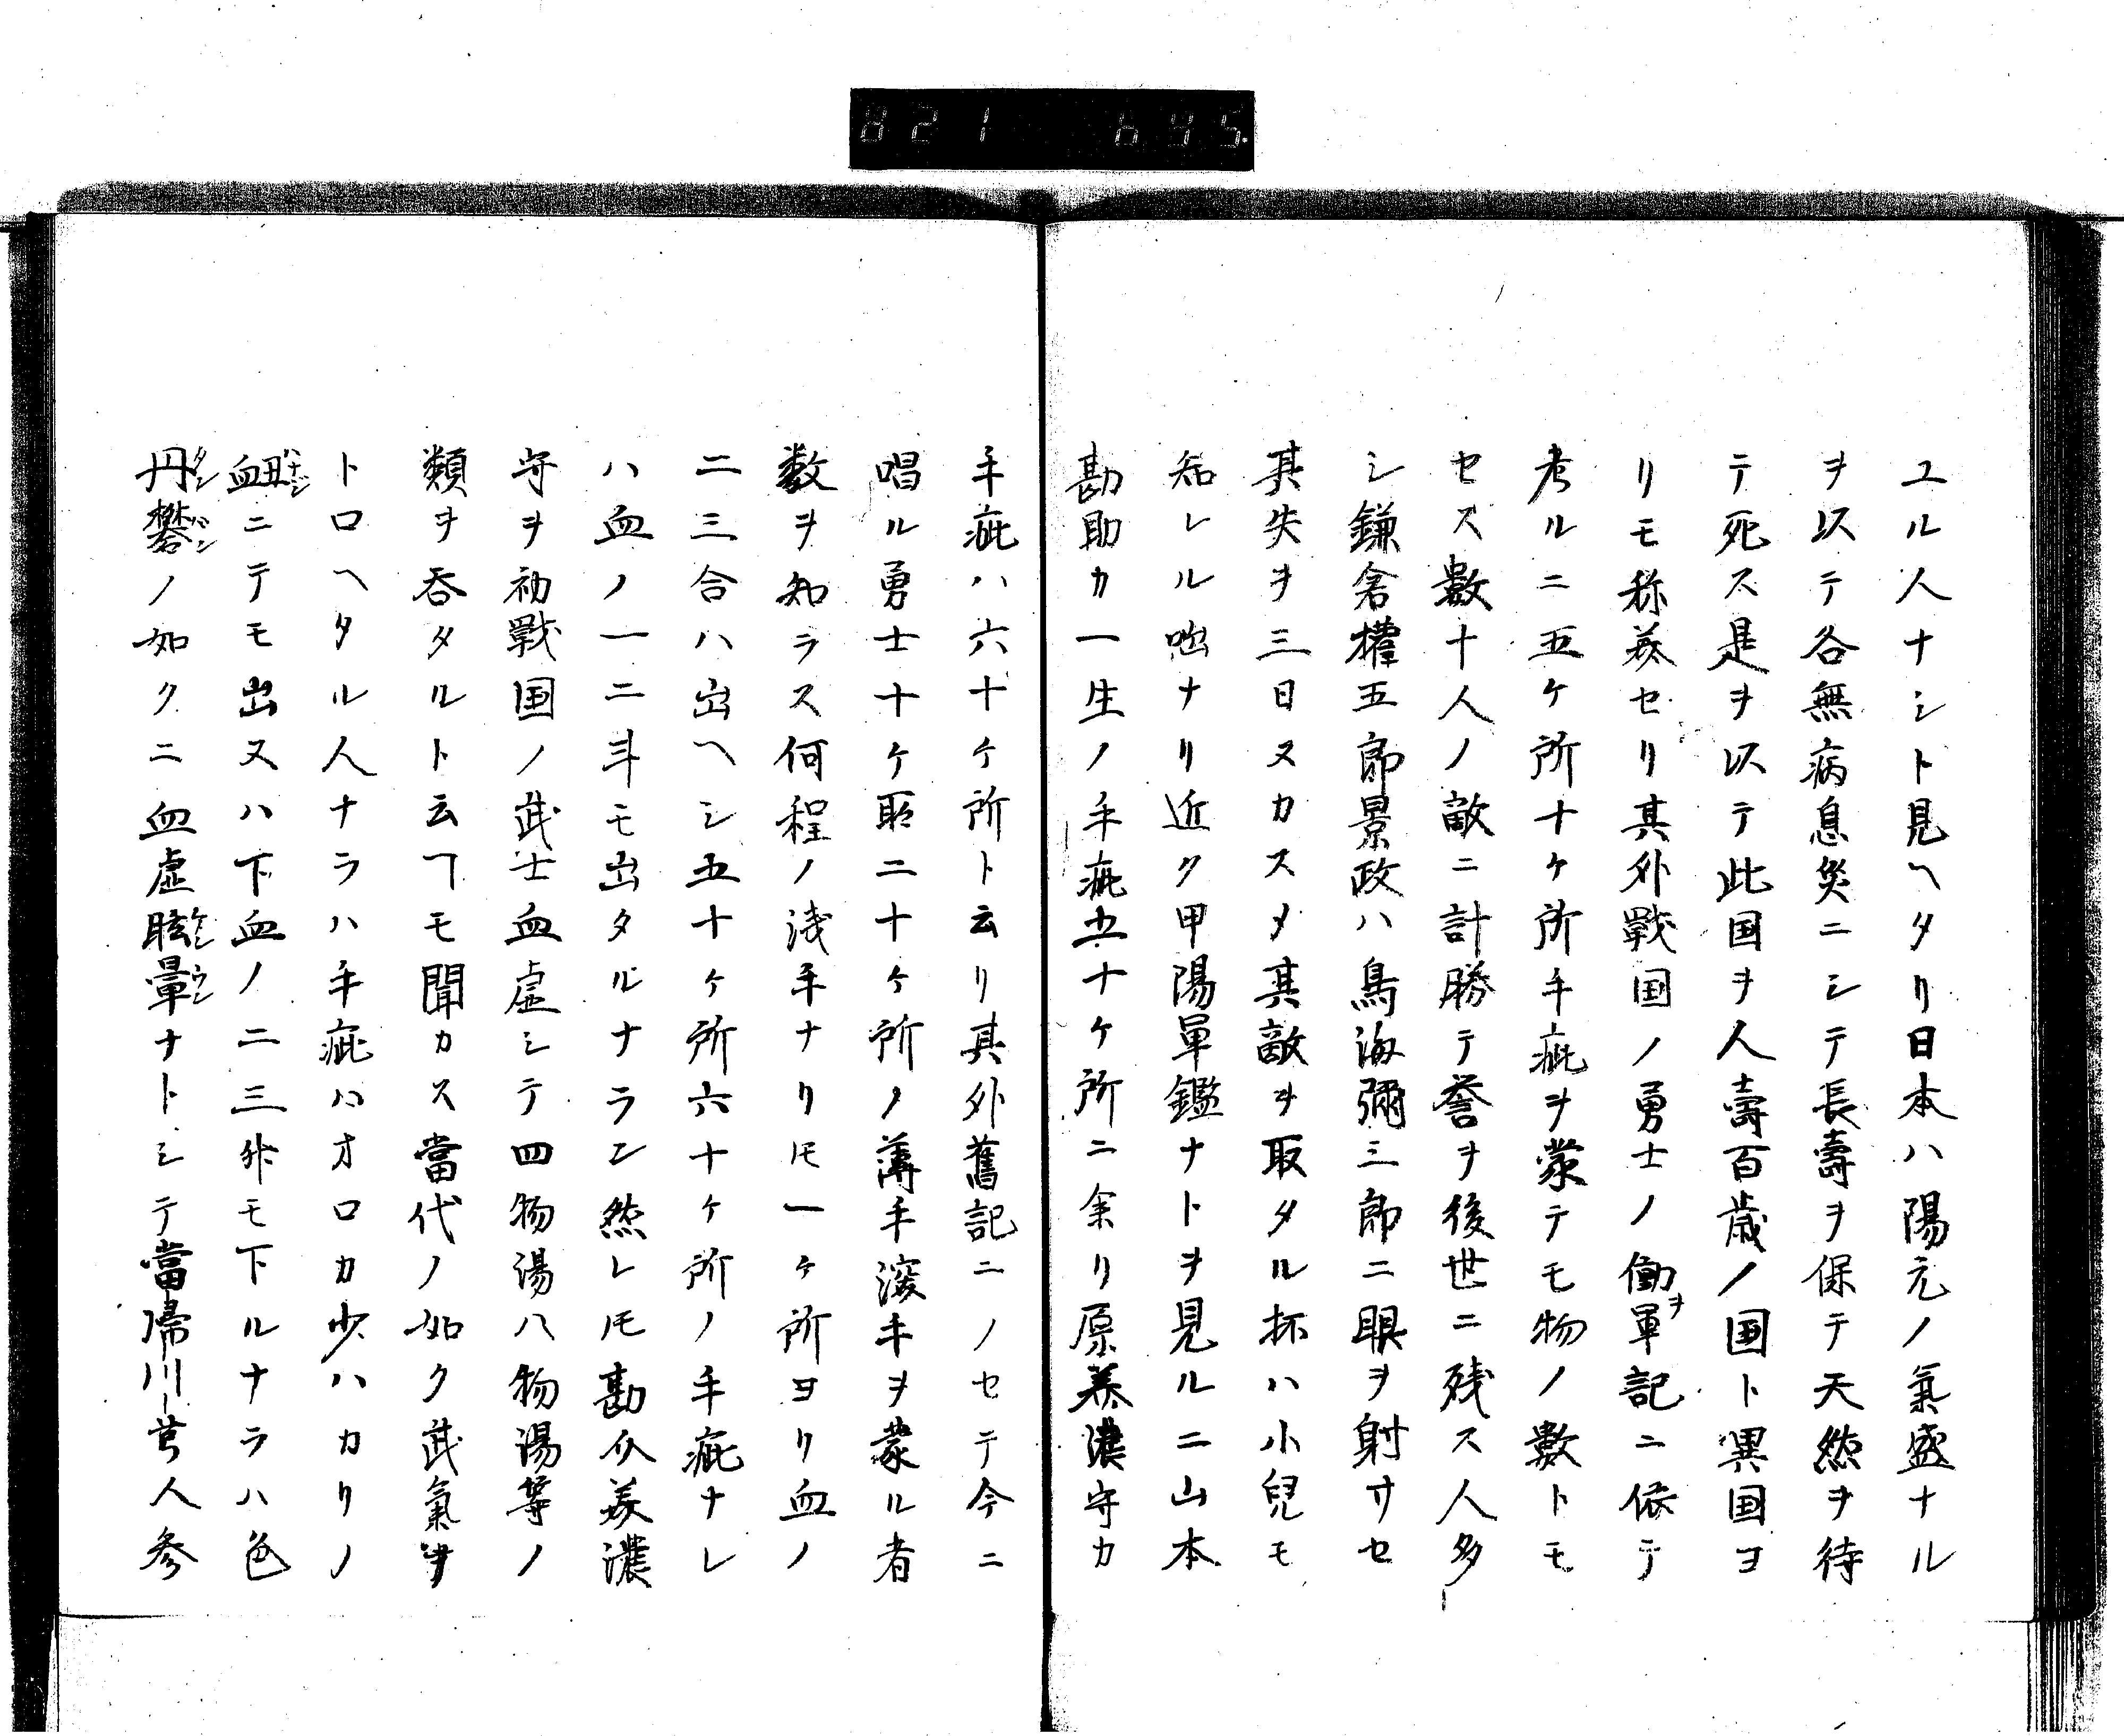 821 645.
ユル人ナシト見ヘタリ日本ハ陽元ノ氣盛ナル
ヲ以テ各無病息災ニシテ長壽ヲ保テ天然ヲ待
テ死ス是ヲ以テ此国ヲ人壽百歳ノ国ト異国ヨ
リモ称美セリ其外戰国ノ勇士ノ働ヲ軍記ニ依テ
考ルニ五ケ所十ケ所手疵ヲ蒙テモ物ノ數トモ
セス數十人ノ敵ニ計勝テ誉ヲ後世ニ残ス人多
シ鎌倉權五郎景政ハ鳥海彌三郎ニ眼ヲ射サセ
其矢ヲ三日ヌカスメ其敵ヲ取タル抔ハ小兒モ
知レル咄ナリ近ク甲陽軍鑑ナトヲ見ルニ山本
勘助カ一生ノ手疵五十ケ所ニ余リ原美濃守カ
手疵ハ六十ケ所ト云リ其外舊記ニノセテ今ニ
唱ル勇士十ケ所二十ケ所ノ薄手深手ヲ蒙ル者
数ヲ知ラス何程ノ浅手ナリモ一ケ所ヨリ血ノ
二三合ハ出ヘシ五十ケ所六十ケ所ノ手疵ナレ
ハ血ノ一二斗モ出タルナラン然レモ勘介美濃
守ヲ初戰国ノ武士血虚シテ四物湯八物湯等ノ
類ヲ呑タルト云ヿモ聞カス當代ノ如ク武氣ヲ
トロヘタル人ナラハ手疵ハオロカ少ハカリノ
衂ハナシニテモ出又ハ下血ノ二三升モ下ルナラハ色
丹タン礬バンノ如クニ血虚眩ケン暈ウンナトシテ當帰川芎人参